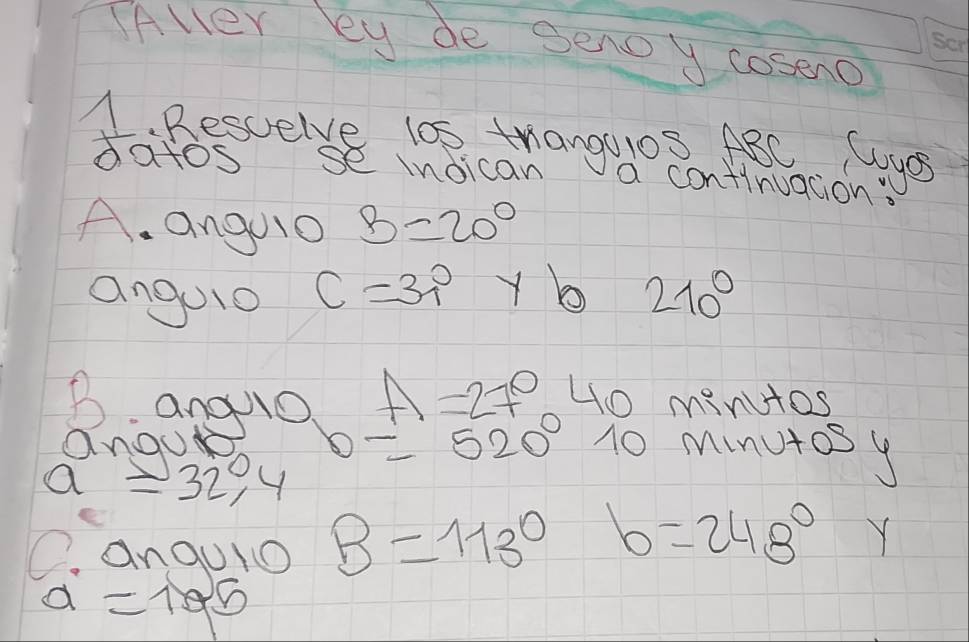 TAller ley de seno y coseno
Scr
1. Resuelve los triangulos ABC, Cuyos
datos se indican a continuacion:
A. angulo B=20°
angulo C=31° Y b 210°
B. angulo A=27° 40 minutos
angulo b= 520° 10 minutos y
a =32°,4
C. angulo B=113° b=248° Y
a =195